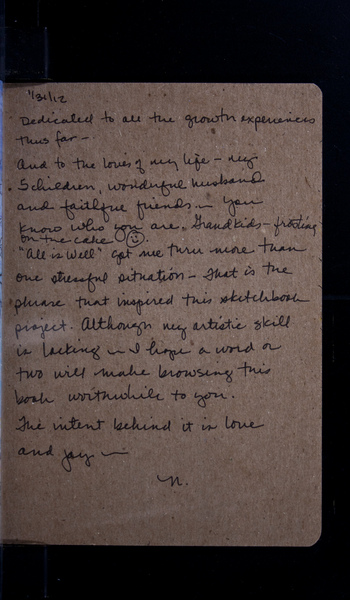 1/31/12
Dedicated to all the growth experiences
thus far -
And to the loves of my life - my
5 children, wonderful husband
and faithful friends - you
know who you are. Grandkids - frosting
on the cake
"All is Well" got me thru more than
one stressful situation - that is the
phrase that inspired this sketchbook
project. Although my artistic skill
is lacking - I hope a word or
two will make browsing this
book worthwhile to you.
The intent behind it is love
and joy -
N.